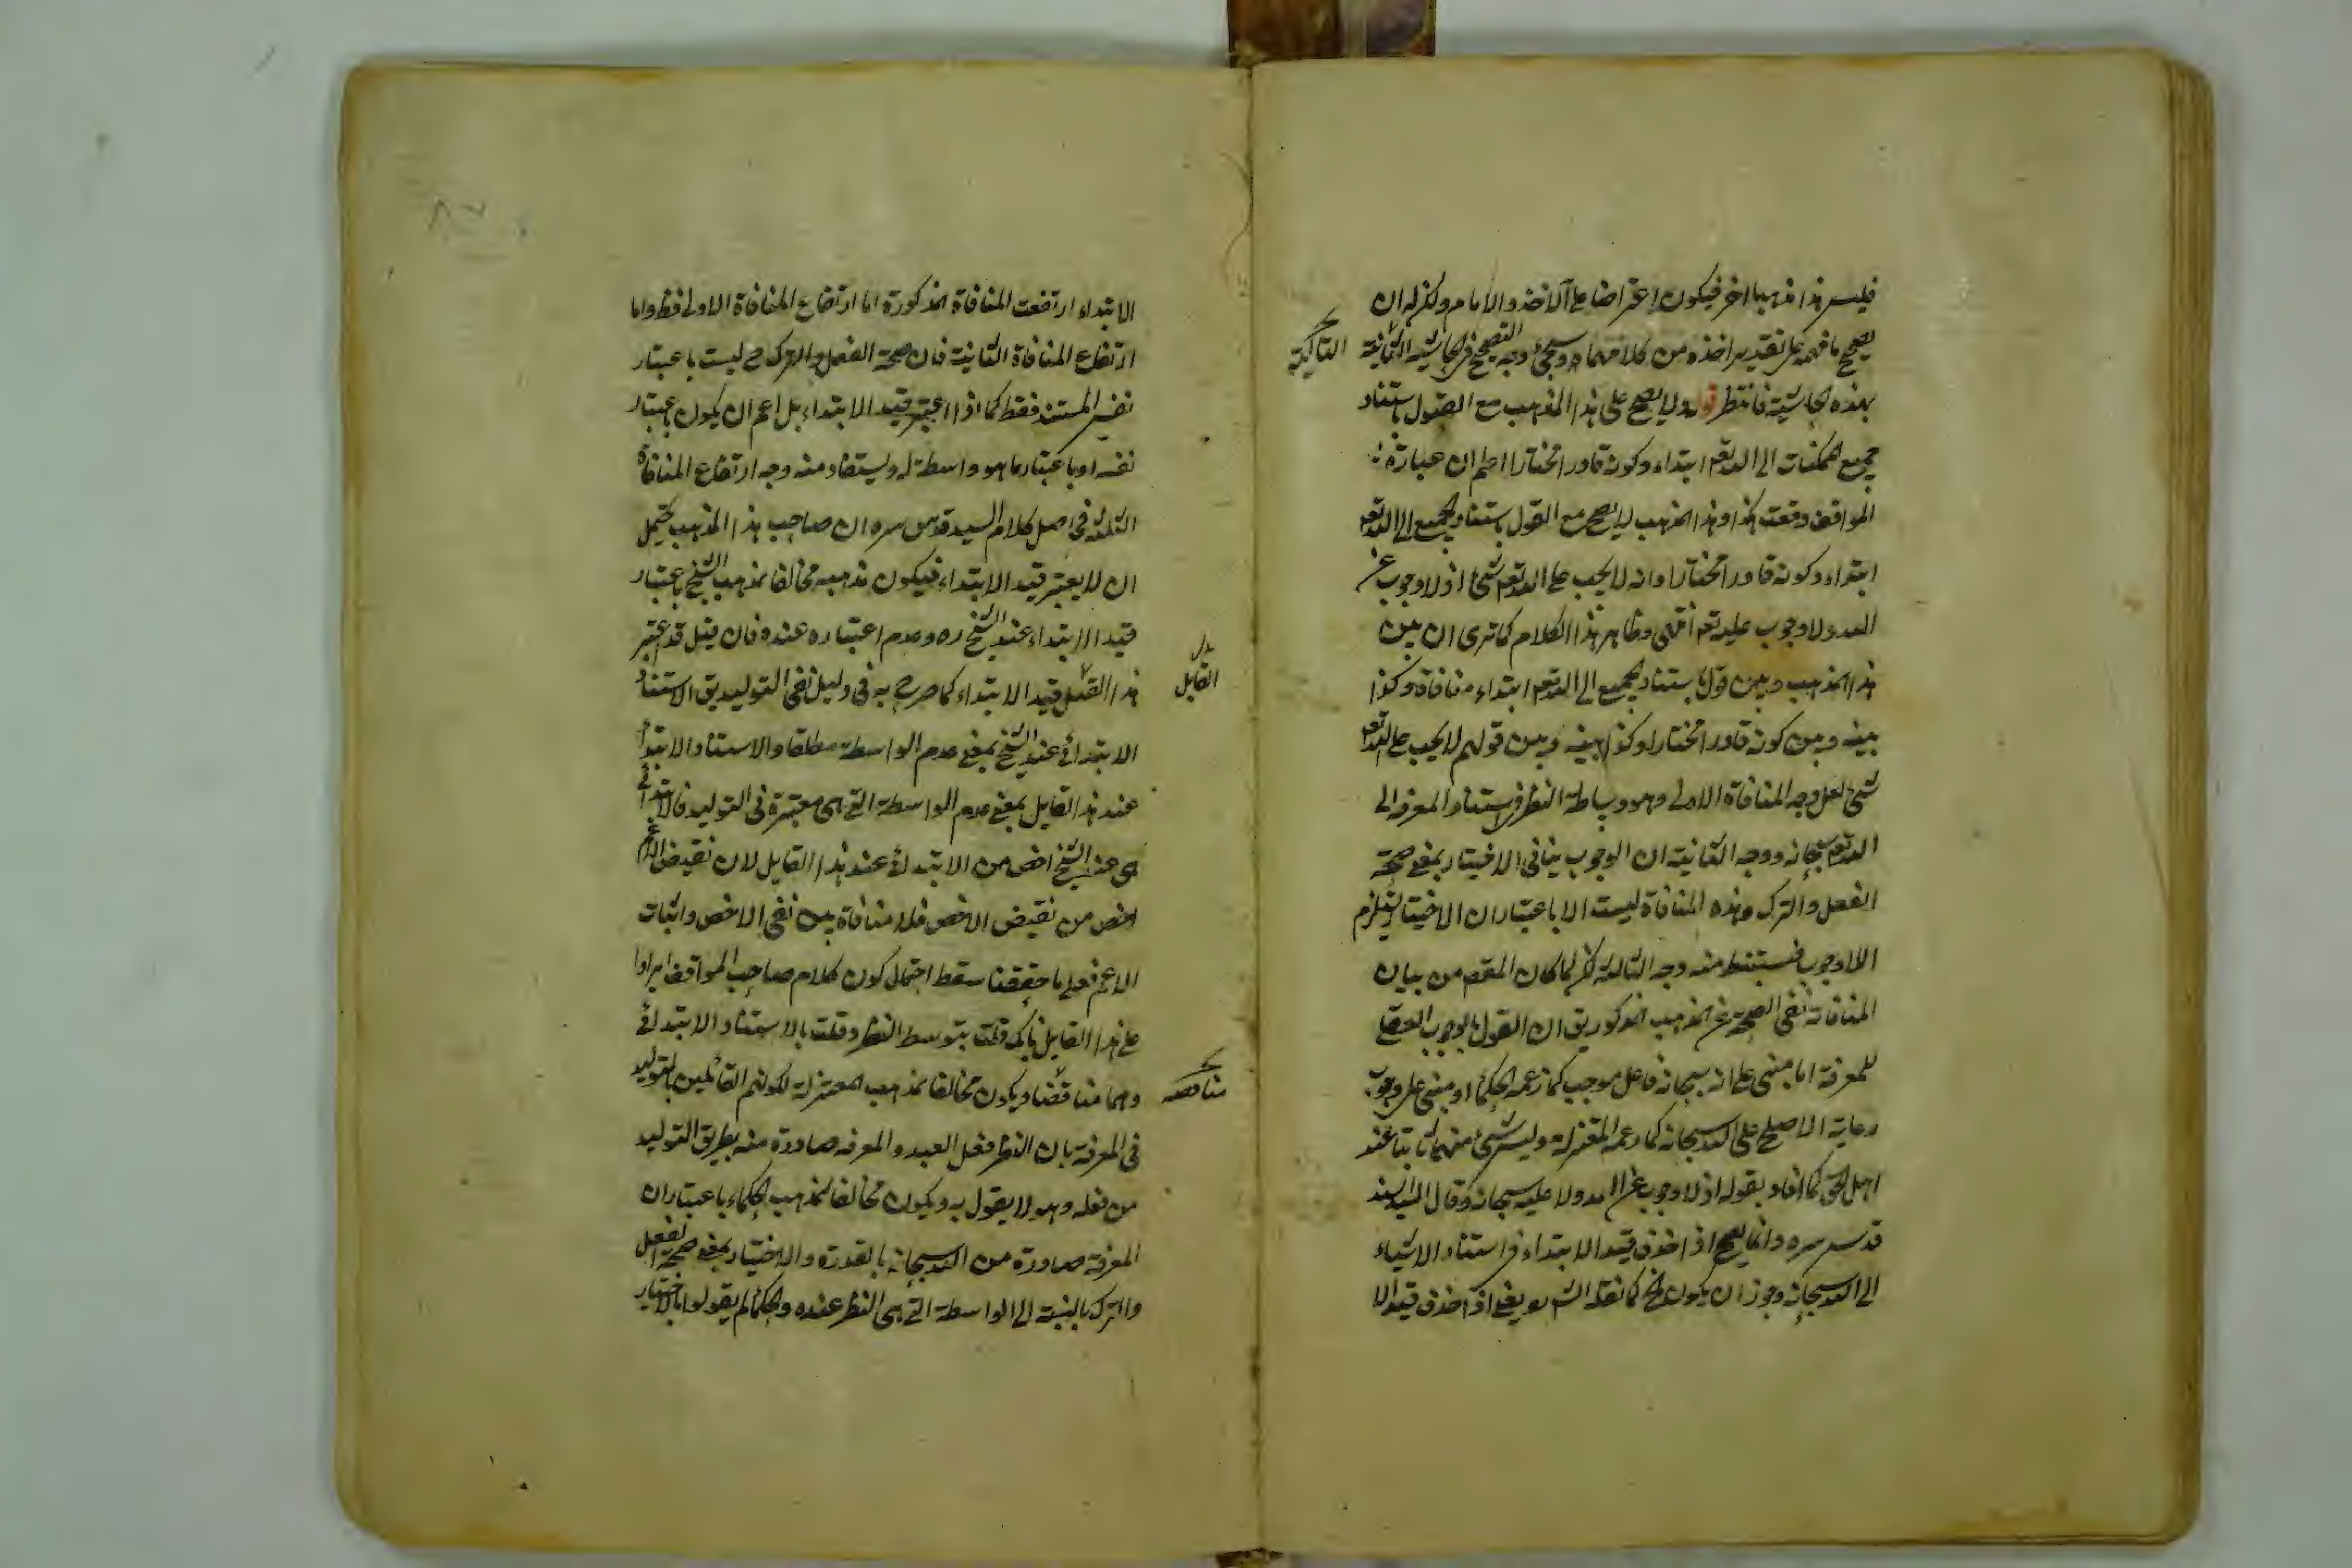 فليس هذا مذهبا اخر فيكون اعتراضا على الآخذ والامام ولكن له ان
يصحح ما فهمه على تقدير اخذه من كلامهما وسيجئ وجه التصحيح في الحاشية الثانية
التالية
بهذه الحاشية فانتظر قوله ولا يصح على هذا المذهب مع القول باستناد
جميع الممكنات الى الله تعه ابتداء وكونه قادرا مختارا اعلم ان عبارة
المواقف وقعت هكذا وهذا المذهب لا يصح مع القول باستناد الجميع الى الله تعه
ابتداء وكونه قادرا مختارا وانه لا يجب على الله تعه شئ اذ لا وجوب عن
الله ولا وجوب عليه تعه انتهى وظاهر هذا الكلام كما ترى ان بين
هذا المذهب وبين قوله باستناد الجميع الى الله تعه ابتداء منافاة وكذا
بينه وبين كونه قادرا مختارا وكذا بينه وبين قولهم لا يجب على الله تعه
شئ لعل وجه المنافاة الاولى هو وساطة النظر في استناد المعرفة الى
الله تعه سبحانه ووجه الثانية ان الوجوب ينافي الاختيار بمعنى صحة
الفعل والترك وهذه المنافاة ليست الا باعتبار ان الاختيار يستلزم
اللاوجوب فيستنبط منه وجه الثالثة لما كان المقص من بيان
المنافاة نفي الصحة عن المذهب المذكور يق ان القول بالوجوب العقلي
للمعرفة اما مبني على انه سبحانه فاعل موجب كما زعمه الحكماء او مبني على وجوب
رعاية الاصلح على الله سبحانه كما زعمه المعتزلة وليس شئ منهما ثابتا عند
اهل الحق كما افاد بقوله اذ لا وجوب عن الله ولا عليه سبحانه وقال السيد السند
قدس سره وانما يصح اذا حذف قيد الابتداء في استناد الاشياء
الى الله سبحانه وجوز ان يكون الخ كما نقله الش يعني اذا حذف قيد الا
الابتداء ارتفعت المنافاة المذكورة اما ارتفاع المنافاة الاولى فظ واما
ارتفاع المنافاة الثانية فان صحة الفعل والترك ح ليست باعتبار
نفس المستند فقط كما اذا اعتبر قيد الابتداء بل اعم ان يكون باعتبار
نفسه او باعتبار ما هو واسطة له ويستفاد منه وجه ارتفاع المنافاة
الثالثة في اصل كلام السيد قدس سره ان صاحب هذا المذهب يحتمل
ان لا يعتبر قيد الابتداء فيكون مذهبه مخالفا لمذهب الشيخ باعتبار
قيد الابتداء عند الشيخ ره وعدم اعتباره عنده فان قيل قد اعتبر
هذا القائل قيد الابتداء كما صرح به في دليل نفي التوليد يق الاستناد
بدل
القايل
الابتدائي عند الشيخ بمعنى عدم الواسطة مطلقا والاستناد الابتدائي
عند هذا القايل بمعنى عدم الواسطة التي هي معتبرة في التوليد فالابتدائي
عند الشيخ اخص من الابتدائي عند هذا القايل لان نقيض الاعم
اخص من نقيض الاخص فلا منافاة بين نفي الاخص واثبات
الاعم فعلى ما حققنا سقط احتمال كون كلام صاحب المواقف ايرادا
على هذا القايل بانك قلت بتوسط النظر وقلت بالاستناد الابتدائي
وهما متناقضان ويكون مخالفا لمذهب المعتزلة لكونهم القائلين بالتوليد
مناقضه
في المعرفة بان النظر فعل العبد والمعرفة صادرة منه بطريق التوليد
من فعله وهو لا يقول به ويكون مخالفا لمذهب الحكماء باعتبار ان
المعرفة صادرة من الله سبحانه بالقدرة والاختيار بمعنى صحة الفعل
والترك بالنسبة الى الواسطة التي هي النظر عنده والحكماء لم يقولوا بالاختيار